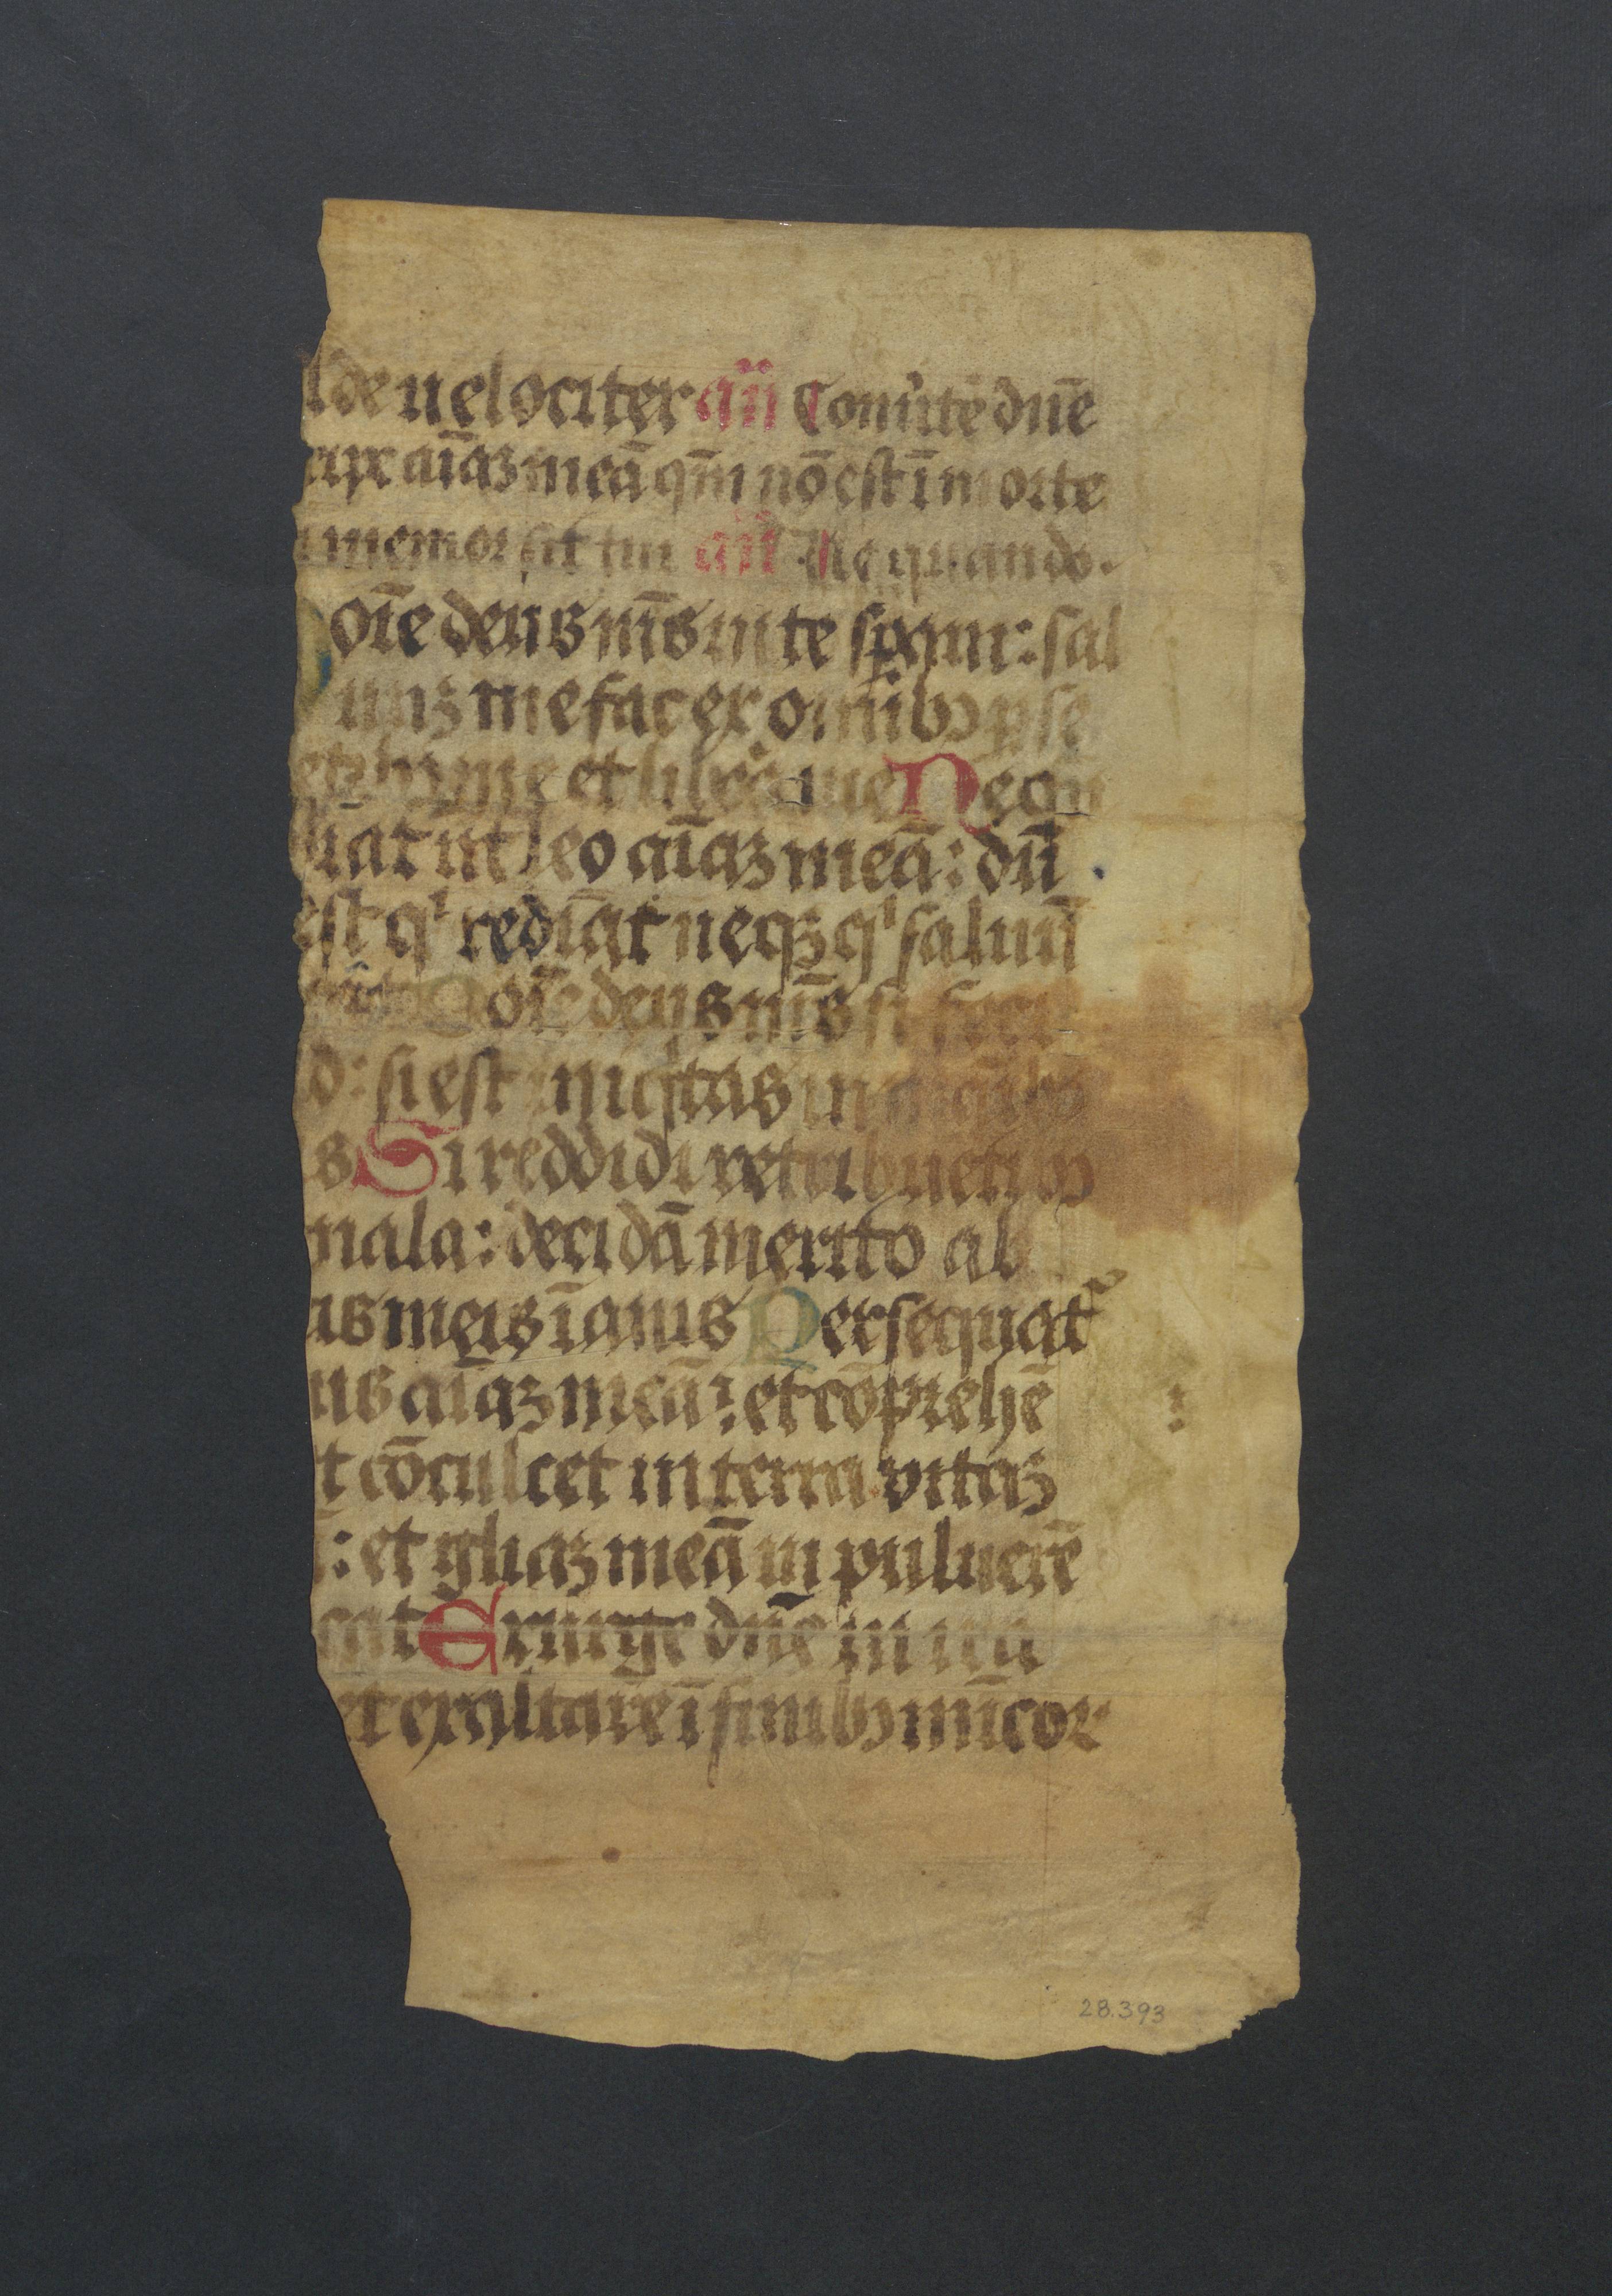 lde uelociter an̄ Conu̓tē dn̄e
erip̲e aīaꝫ meā qm̄ nō est ī morte
memor sit tui an̄ Ne quando.
oīe deus m̄s in te sꝑaui: sal
uuꝫ me fac ex omnibꝫ ꝑse
etꝫ bꝫ me et libera me Nequn̄
piat ut leo aīaꝫ meā: dū
est qͥ redimat neqꝫ qͥ saluū
Dn̄e deus m̄s si feci
d: si est iniqͥtas in manibꝫ
s Si reddidi retribuētibꝫ
mala: decidā merito ab
is meis īanis Persequat᷑
us aīaꝫ meā: et cōprehē
t cōculcet in terra vitaꝫ
: et gl̄iaꝫ meā in puluerē
cat Exurge dn̄e in ira
et exaltare ī finibꝫ inīcor
28.393